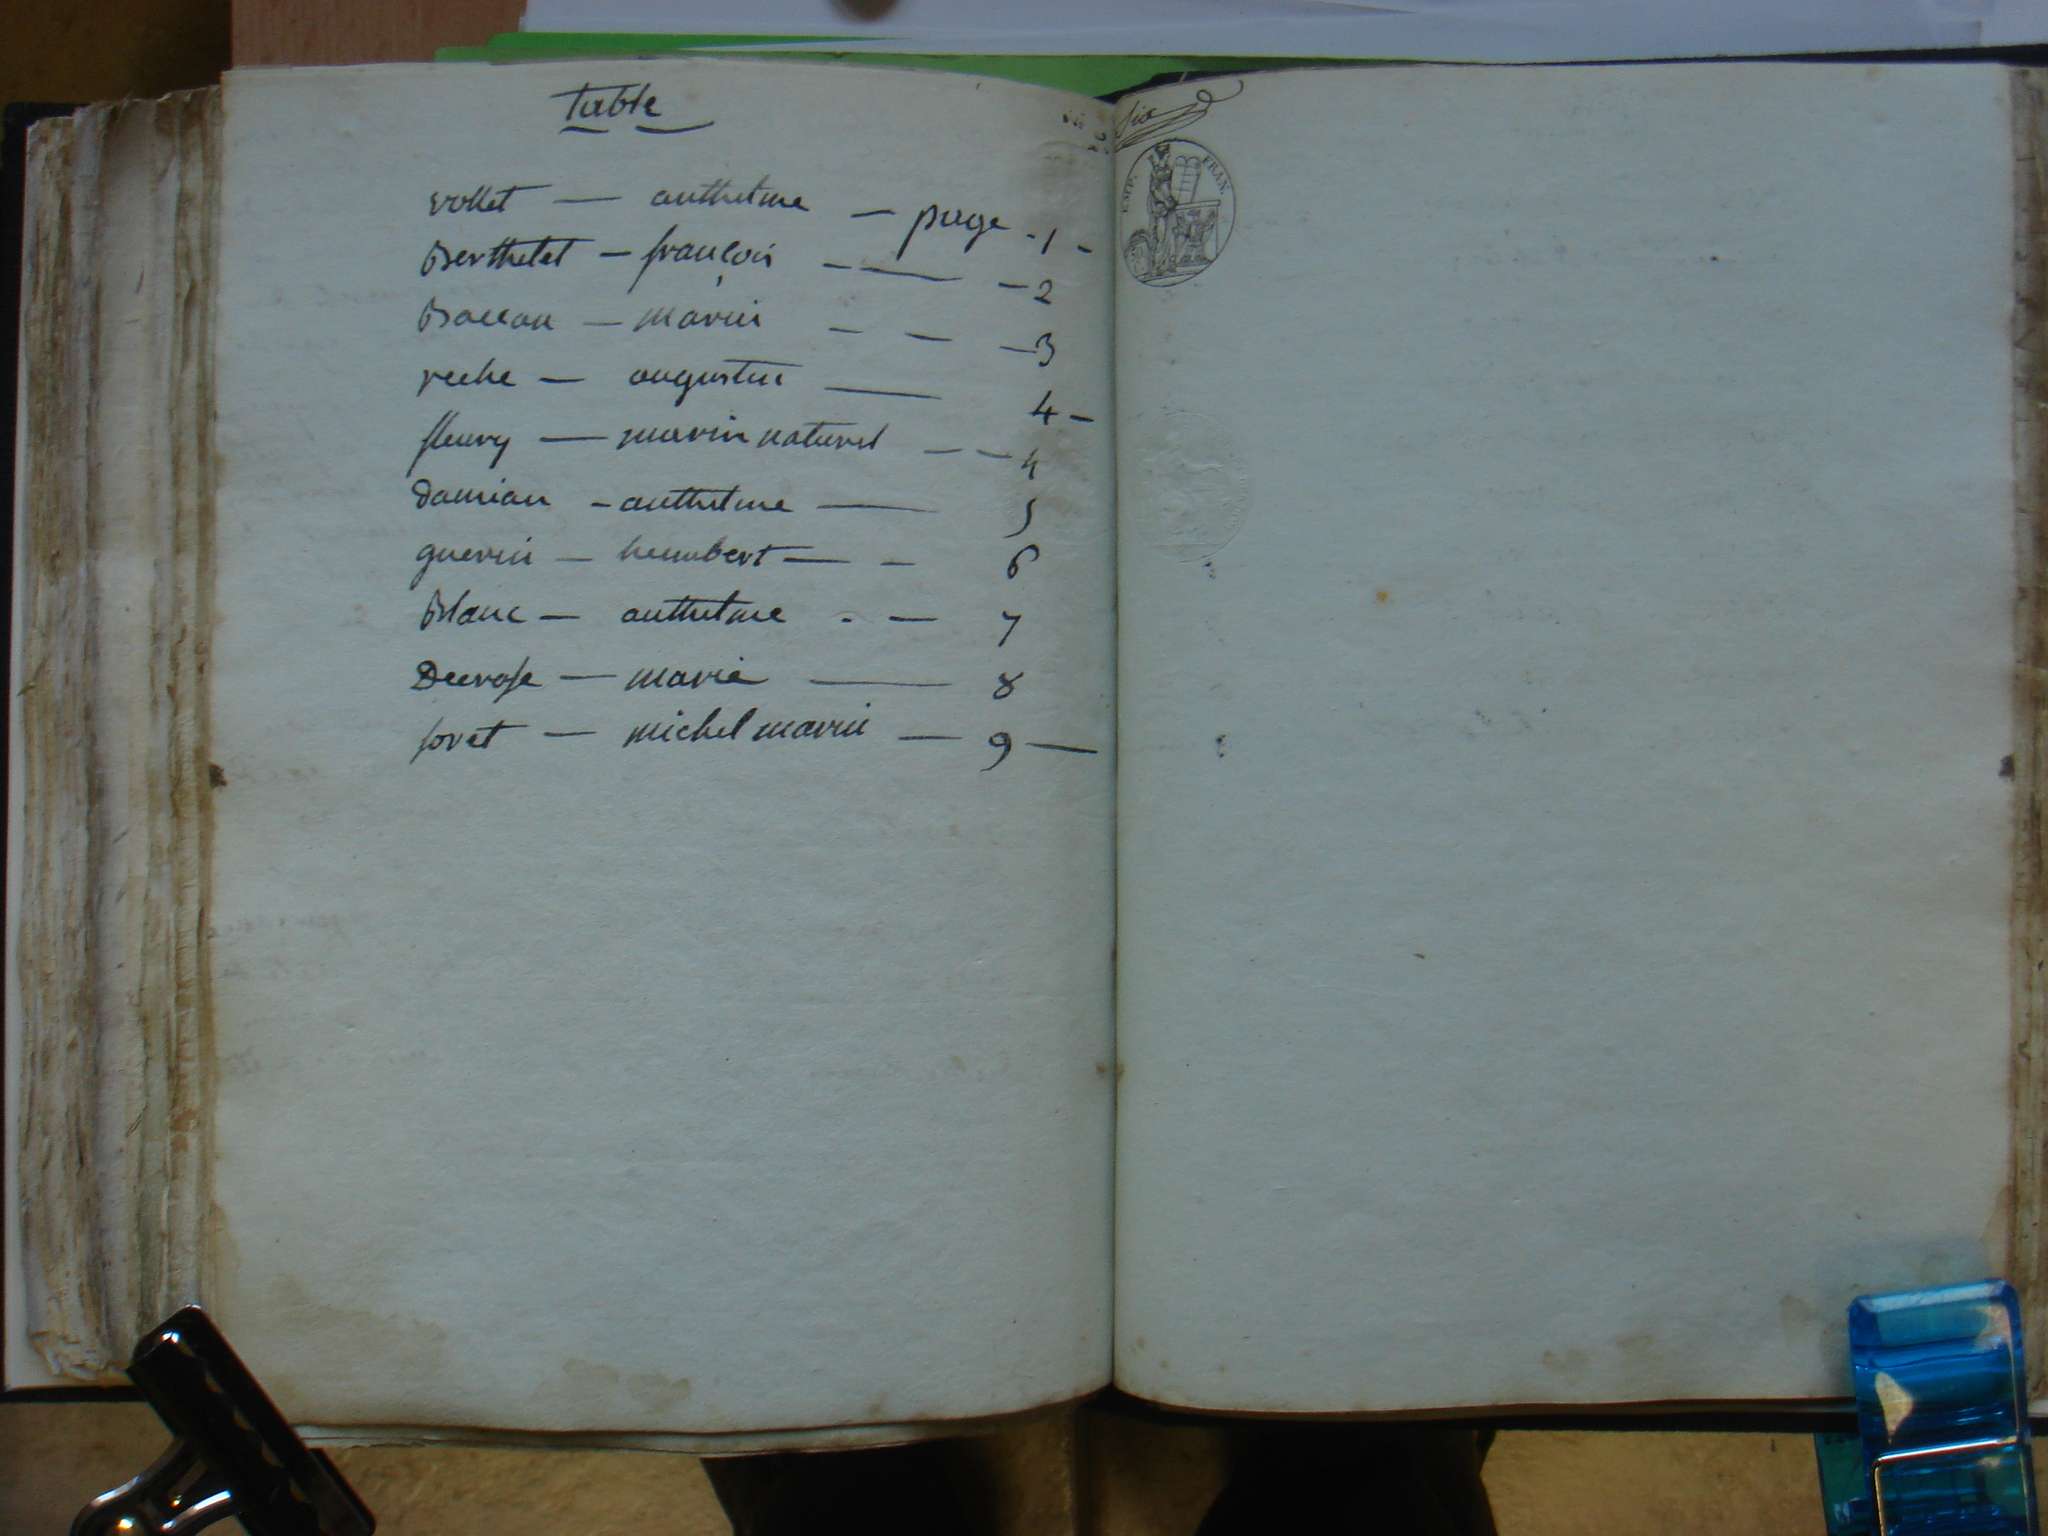 table
vollet — anthelme — page - 1 -
Berthelet — françois — — 2
Baccon — marin — — — 3
reche — augustin — 4 -
fleury — marin naturel — — 4
damian - anthelme — 5
guerin — humbert — - 6
Blanc — anthelme - — 7
Decrose — marie — 8
foret — michel marin — 9 —
six
EMP. FRAN.